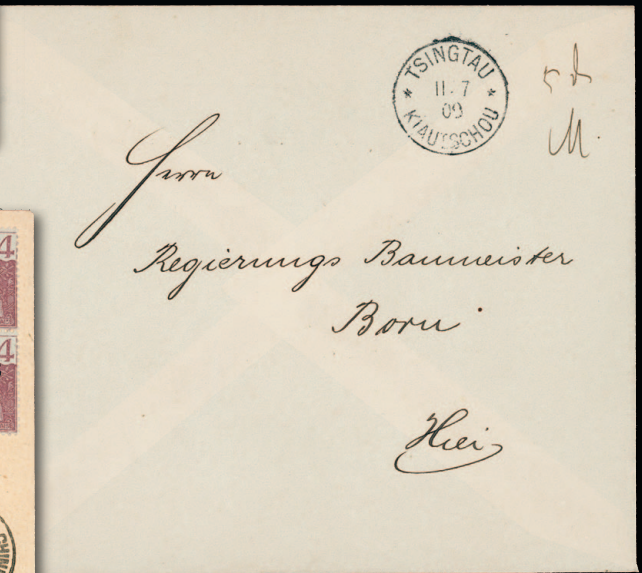 TSINGTAU
11.7
09
KIAUTSCHOU
M
Herrn
Regierungs Baumeister
Born
Hier
4
4